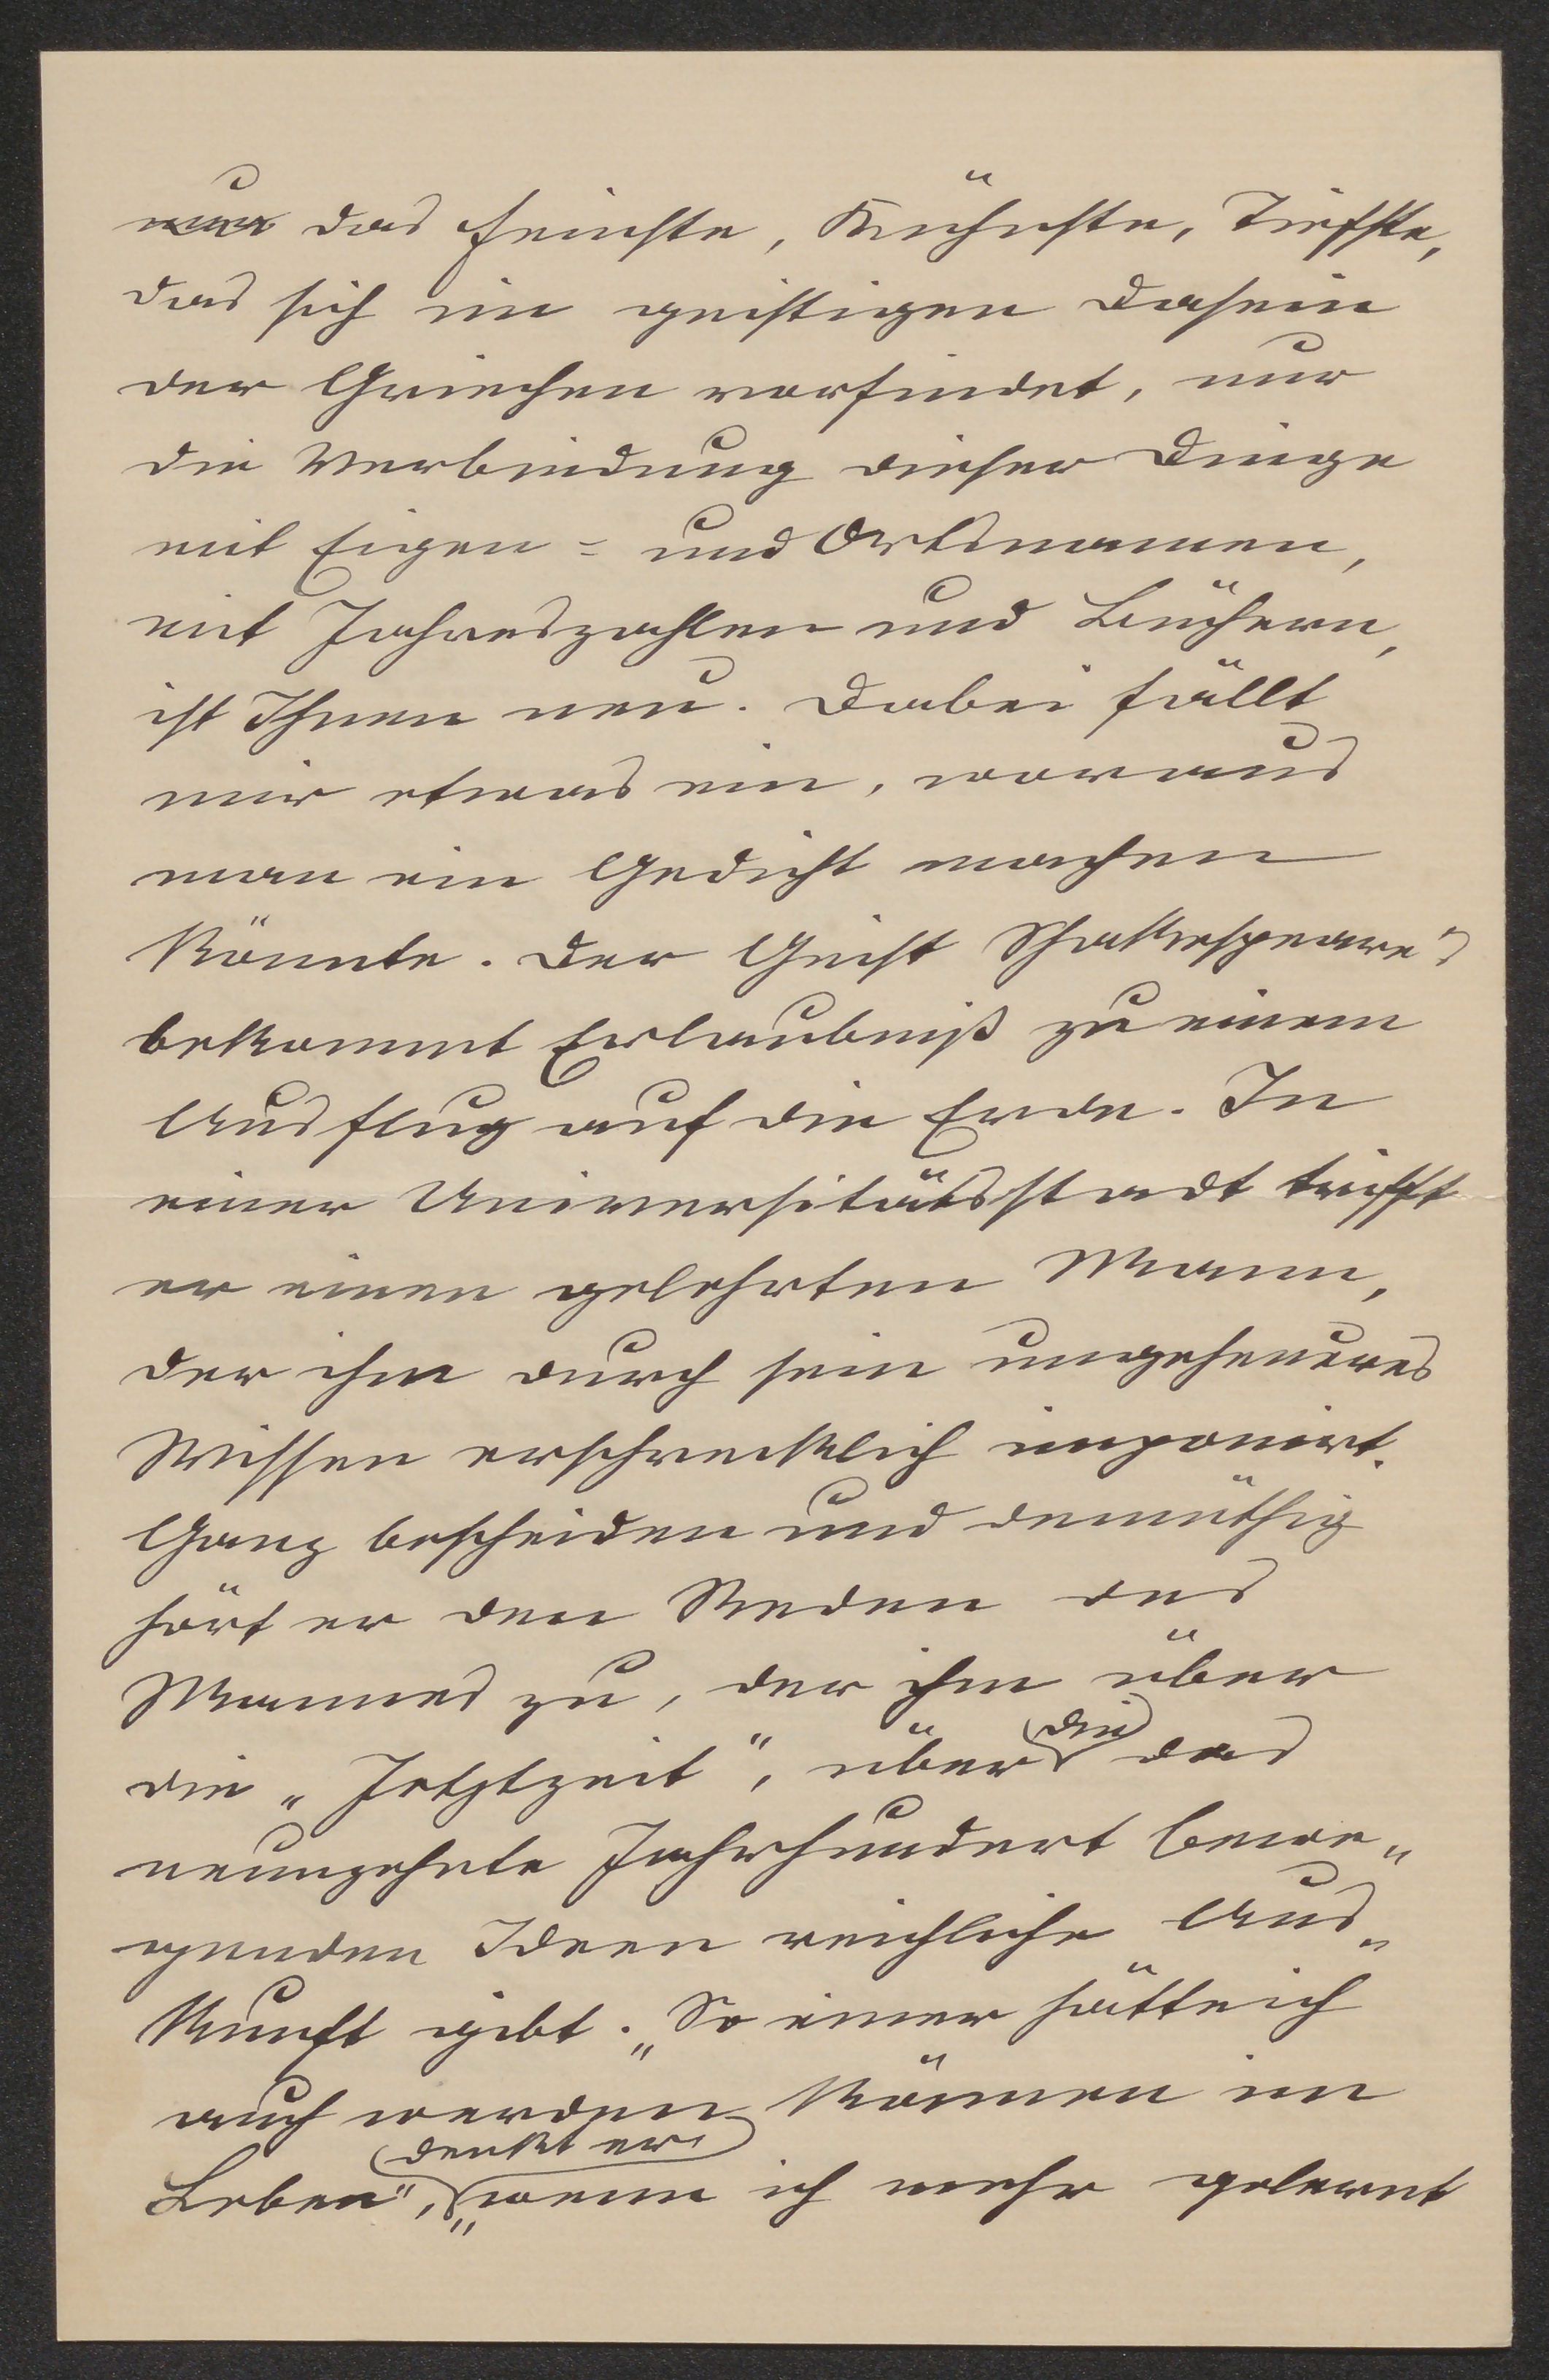 nur das Feinste, Kühnste, Tiefste,
das sich im geistigen Dasein
der Griechen vorfindet, nur
die Verbindung dieser Dinge
mit Eigen= und Ortsnamen,
mit Jahreszahlen und Büchern,
ist Ihnen neu. Dabei fällt
mir etwas ein, woraus
man ein Gedicht machen
könnte. Der Geist Shakespeare's
bekommt Erlaubniß zu einem
Ausflug auf die Erde. In
einer Universitätsstadt trifft
er einen gelehrten Mann,
der ihm durch sein ungeheueres
Wissen erschrecklich imponirt.
Ganz bescheiden und demüthig
hört er den Reden des
Mannes zu, der ihm über
die „Jetztzeit", über die das
neunzehnte Jahrhundert bewe„
genden Ideen reichliche Aus„
kunft gibt. „So einer hätte ich
auch werden können im
Leben", denkt er, „wenn ich mehr gelernt